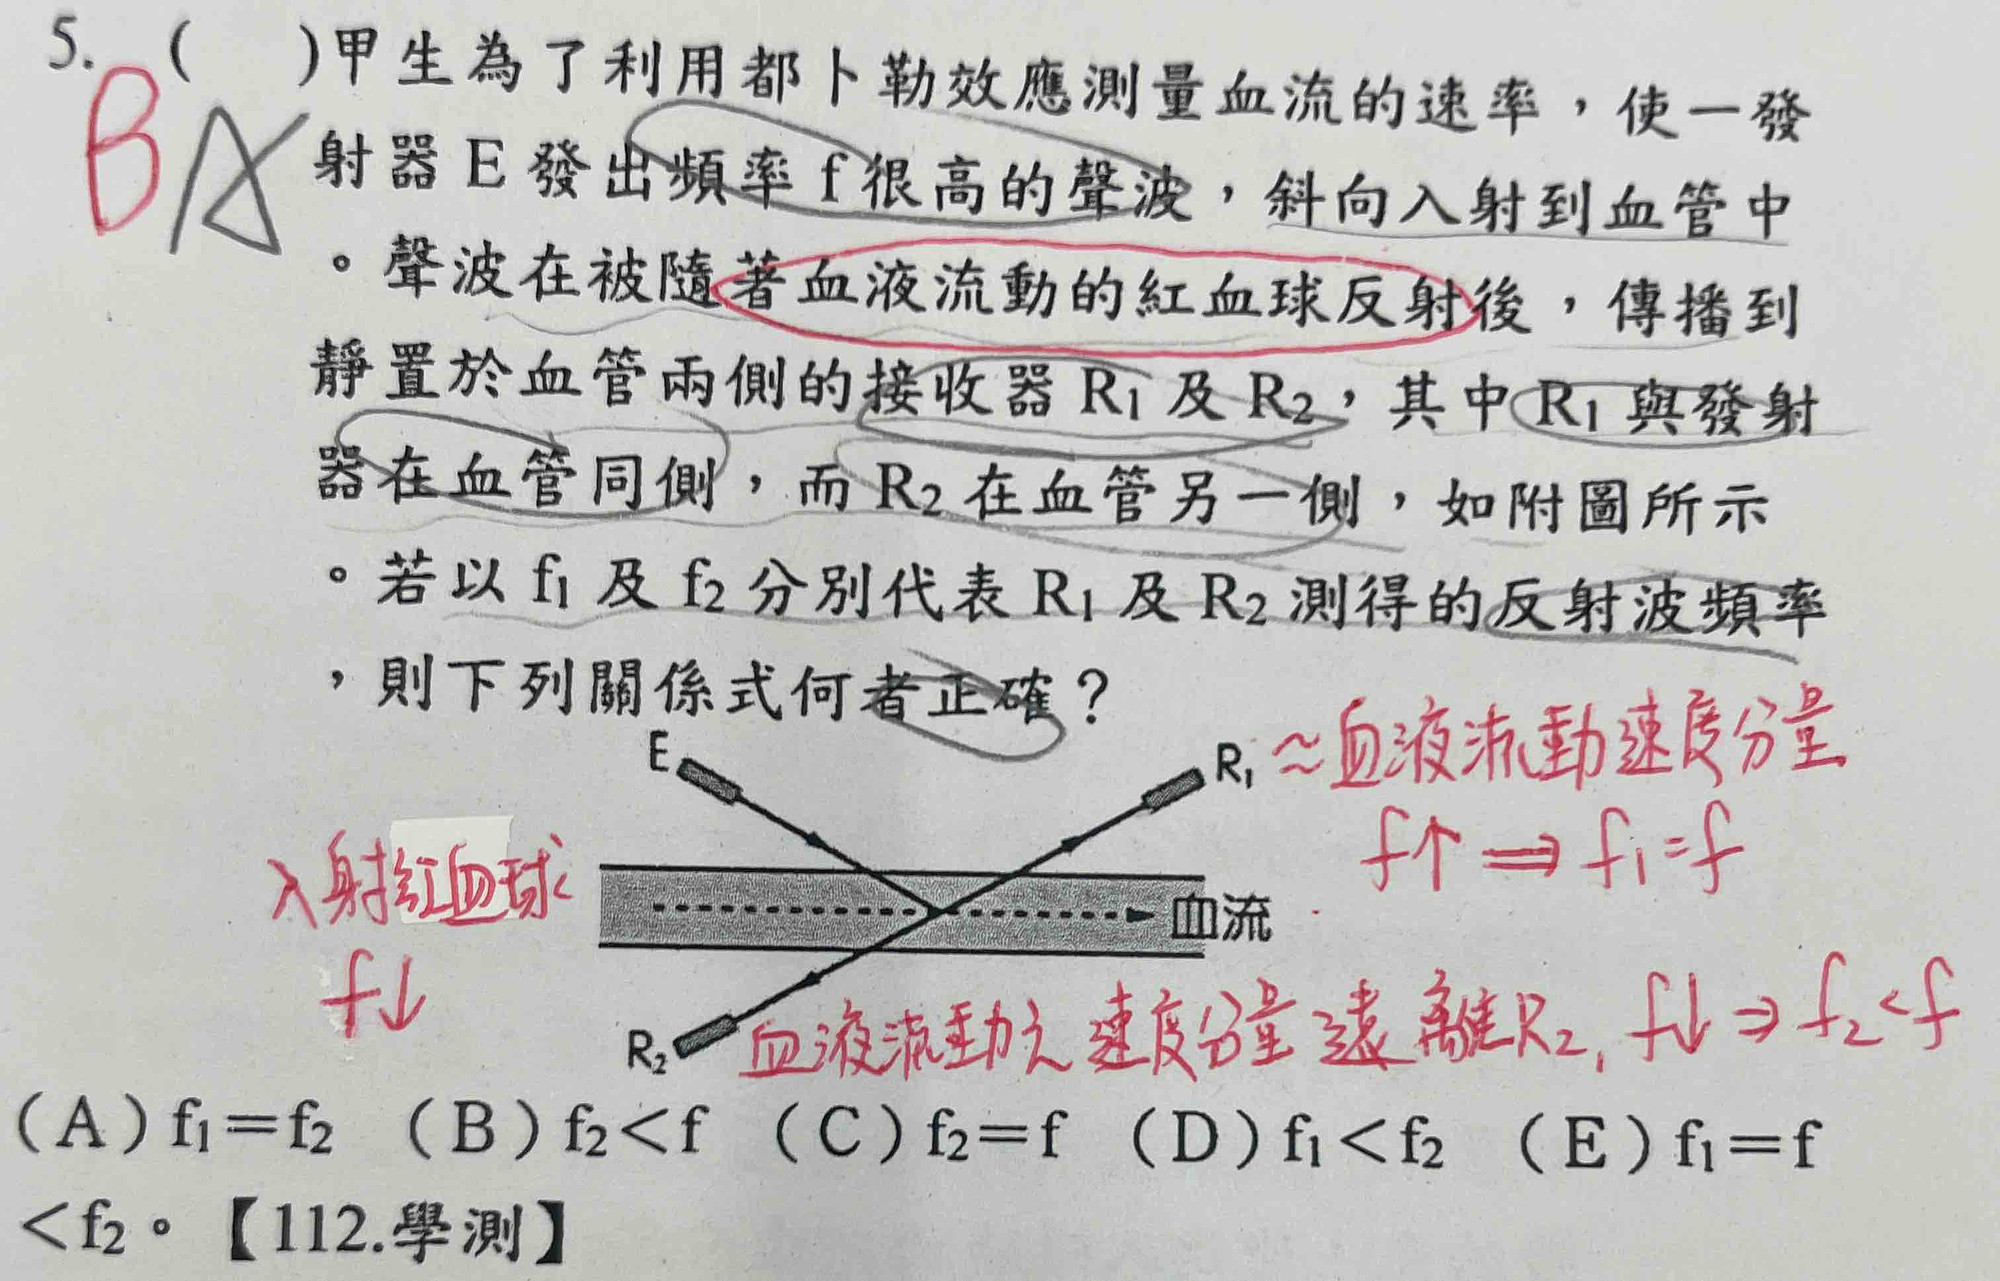 5. (　　)甲生為了利用都卜勒效應測量血流的速率，使一發
B A
射器 E 發出頻率 f 很高的聲波，斜向入射到血管中
。聲波在被隨著血液流動的紅血球反射後，傳播到
靜置於血管兩側的接收器 R₁ 及 R₂，其中 R₁ 與發射
器在血管同側，而 R₂ 在血管另一側，如附圖所示
。若以 f₁ 及 f₂ 分別代表 R₁ 及 R₂ 測得的反射波頻率
，則下列關係式何者正確？
E
R₁ ～血液流動速度分量
f↑ ⇒ f₁=f
入射紅血球
f↓
血流
R₂ 血液流動之速度分量遠離R₂, f↓ ⇒ f₂<f
(A) f₁＝f₂ (B) f₂＜f (C) f₂＝f (D) f₁＜f₂ (E) f₁＝f
＜f₂。【112.學測】